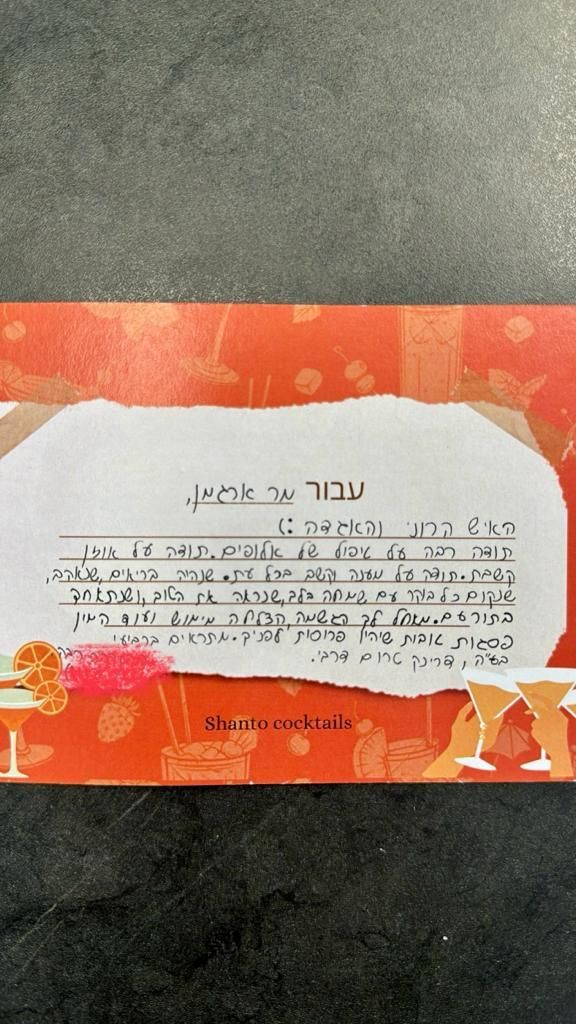 עבור מר ארגמן,
האיש הקרוני והאגדה :)
תודה רבה על טיפול של אלופים. תודה על אוזן
קשבת. תודה על מענה וקשב בכל עת. שנהיה בריאים, שנאהב,
שנקום כל בוקר עם שמחה בלב, שנראה את הטוב, ושנתאחד
בתור עם. מאחל לך הגשמה, הצלחה מימוש ועוד המון
פסגות טובות שיהיו פרוסות לפניך. מתראים ברביעי
בע"ה, דרינק טרום דרבי.
Shanto cocktails